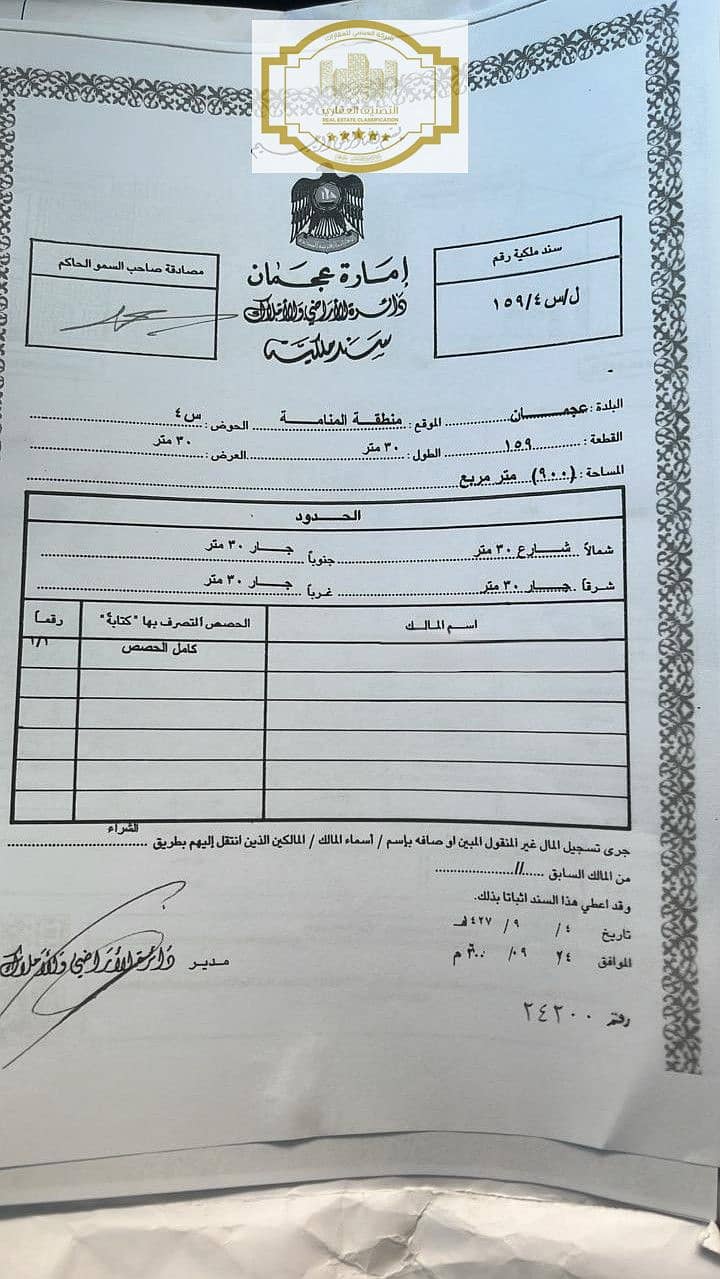 شركة العبسي للعقارات
التصنيف العقاري
REAL ESTATE CLASSIFICATION
إمارة عجمان
دائرة الأراضي والأملاك
سند ملكية
سند ملكية رقم
ل/س/٤/١٥٩
مصادقة صاحب السمو الحاكم
البلدة: عجمـــان الموقع: منطقة المنامة الحوض: س٤
القطعة: ١٥٩ الطول: ٣٠ متر العرض: ٣٠ متر
المساحة: (٩٠٠) متر مربع
الحــدود
شمالاً شــارع ٣٠ متر جنوباً جــار ٣٠ متر
شرقاً جــار ٣٠ متر غرباً جــار ٣٠ متر
اســم المالــك الحصص التصرف بها "كتابة" رقماً
كامل الحصص ١/١
الشراء
جرى تسجيل المال غير المنقول المبين او صافه بإسم / أسماء المالك / المالكين الذين انتقل إليهم بطريق
من المالك السابق //
وقد اعطي هذا السند اثباتا بذلك.
تاريخ ٤/ ٩/ ٤٢٧هـ
الموافق ٢٤ /٠٩
مدير دائرة الأراضي والأملاك
رقم ٢٤٢٠٠